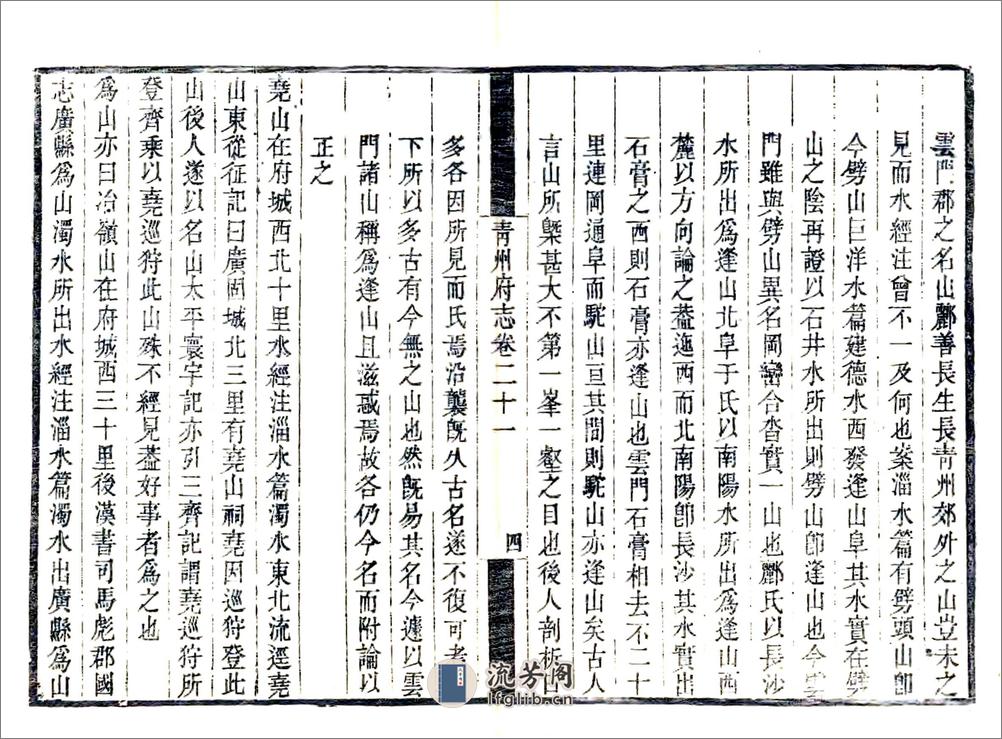 雲門郡之名山酈善長生長青州郊外之山豈未之
見而水經注曾不一及何也案淄水篇有劈頭山卽
今劈山巨洋水篇建德水西發逢山阜其水實在劈
山之陰再證以石井水所出則劈山卽逢山也今雲
門雖與劈山異名岡巒合沓實一山也酈氏以長沙
水所出爲逢山北阜于氏以南陽水所出爲逢山西
麓以方向論之葢迤西而北南陽卽長沙其水實出
石膏之西則石膏亦逢山也雲門石膏相去不二十
里連岡通阜而駝山亘其間則駝山亦逢山矣古人
言山所槩甚大不第一峯一壑之目也後人剖析
青州府志卷二十一
四
多各因所見而氏焉沿襲旣久古名遂不復可考
下所以多古有今無之山也然旣易其名今遽以雲
門諸山稱爲逢山且滋惑焉故各仍今名而附論以
正之
堯山在府城西北十里水經注淄水篇濁水東北流逕堯
山東從征記曰廣固城北三里有堯山祠堯因巡狩登此
山後人遂以名山太平寰宇記亦引三齊記謂堯巡狩所
登齊乘以堯巡狩此山殊不經見葢好事者爲之也
爲山亦曰冶嶺山在府城西三十里後漢書司馬彪郡國
志廣縣爲山濁水所出水經注淄水篇濁水出廣縣爲山
流芳阁
lfglib.cn